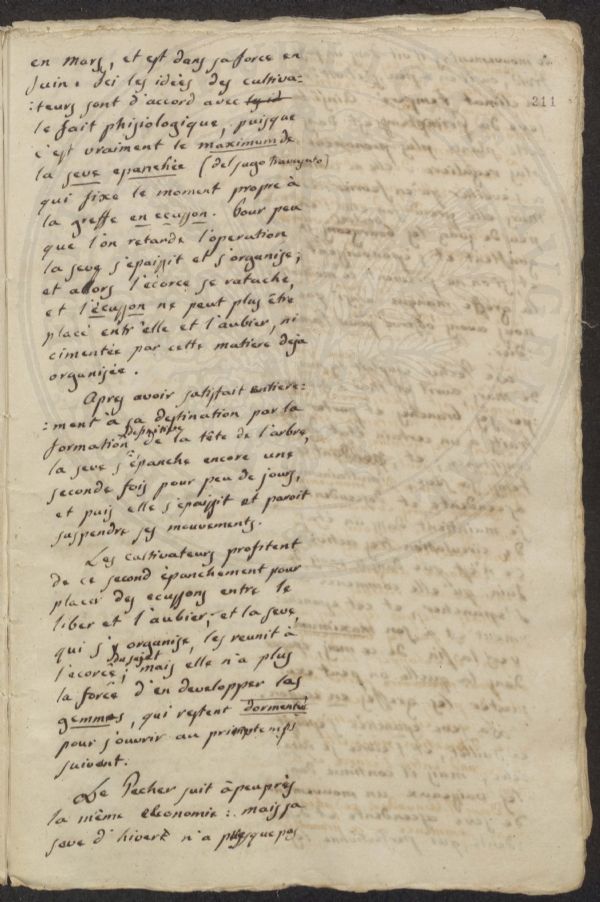 en Mars, et est dans sa force en
Juin. Ici les idées des cultiva:
:teurs sont d'accord avec
211
le fait phisiologique, puisque
c'est vraiment le maximum de
la seve epanchée (del sugo travasato)
qui fixe le moment propre à
la greffe en ecusson. Pour peu
que l'on retarde l'operation
la seve s'epaissit et s'organise;
et alors l'écorce se ratache,
et l'écusson ne peut plus être
placé entr'elle et l'aubier, ni
cimentée par cette matiere deja
organisée.
Apres avoir satisfait entiere:
:ment à sa destination par la
formation definitive de la tête de l'arbre,
la seve s'épanche encore une
seconde fois pour peu de jours,
et puis elle s'epaissit et paroit
suspendre ses mouvements.
Les cultivateurs profitent
de ce second épanchement pour
placer des ecussons entre le
liber et l'aubier; et la seve,
qui s'y organise, les reunit à
l'ecorce du sujet; mais elle n'a plus
la force d'en developper les
gemmes, qui restent dormentes
pour s'ouvrir au printemps
suivent.
Le Pecher suit àpeuprès
la même economie: mais sa
seve d'hivers n'a presque pas